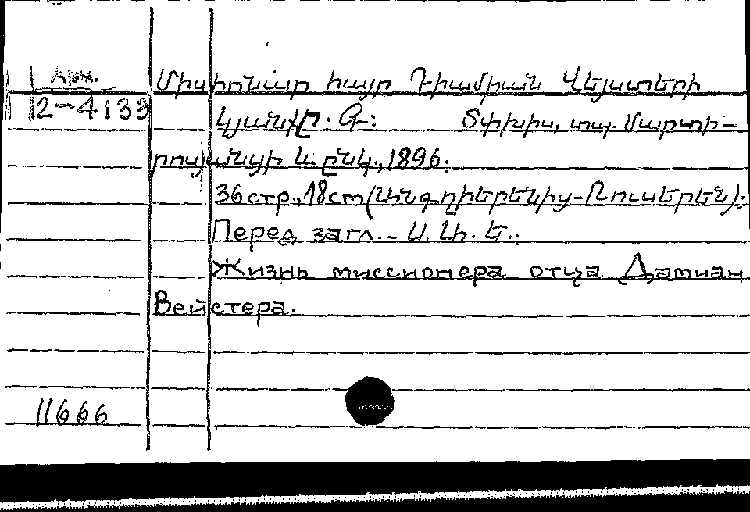 Арм.
2-4133
Միսիոնար հայր Դիամիան Վեյստերի
կյանքը. Գ: Տփխիս, տպ. Մարտի-
րոսյանցի և ընկ., 1896.
36стр., 18cm (Անգղիերենից-Ռուսերեն).
Перед загл.- Ս. Մ. Է..
Жизнь миссионера отца Дамиан
Вейстера.
11666